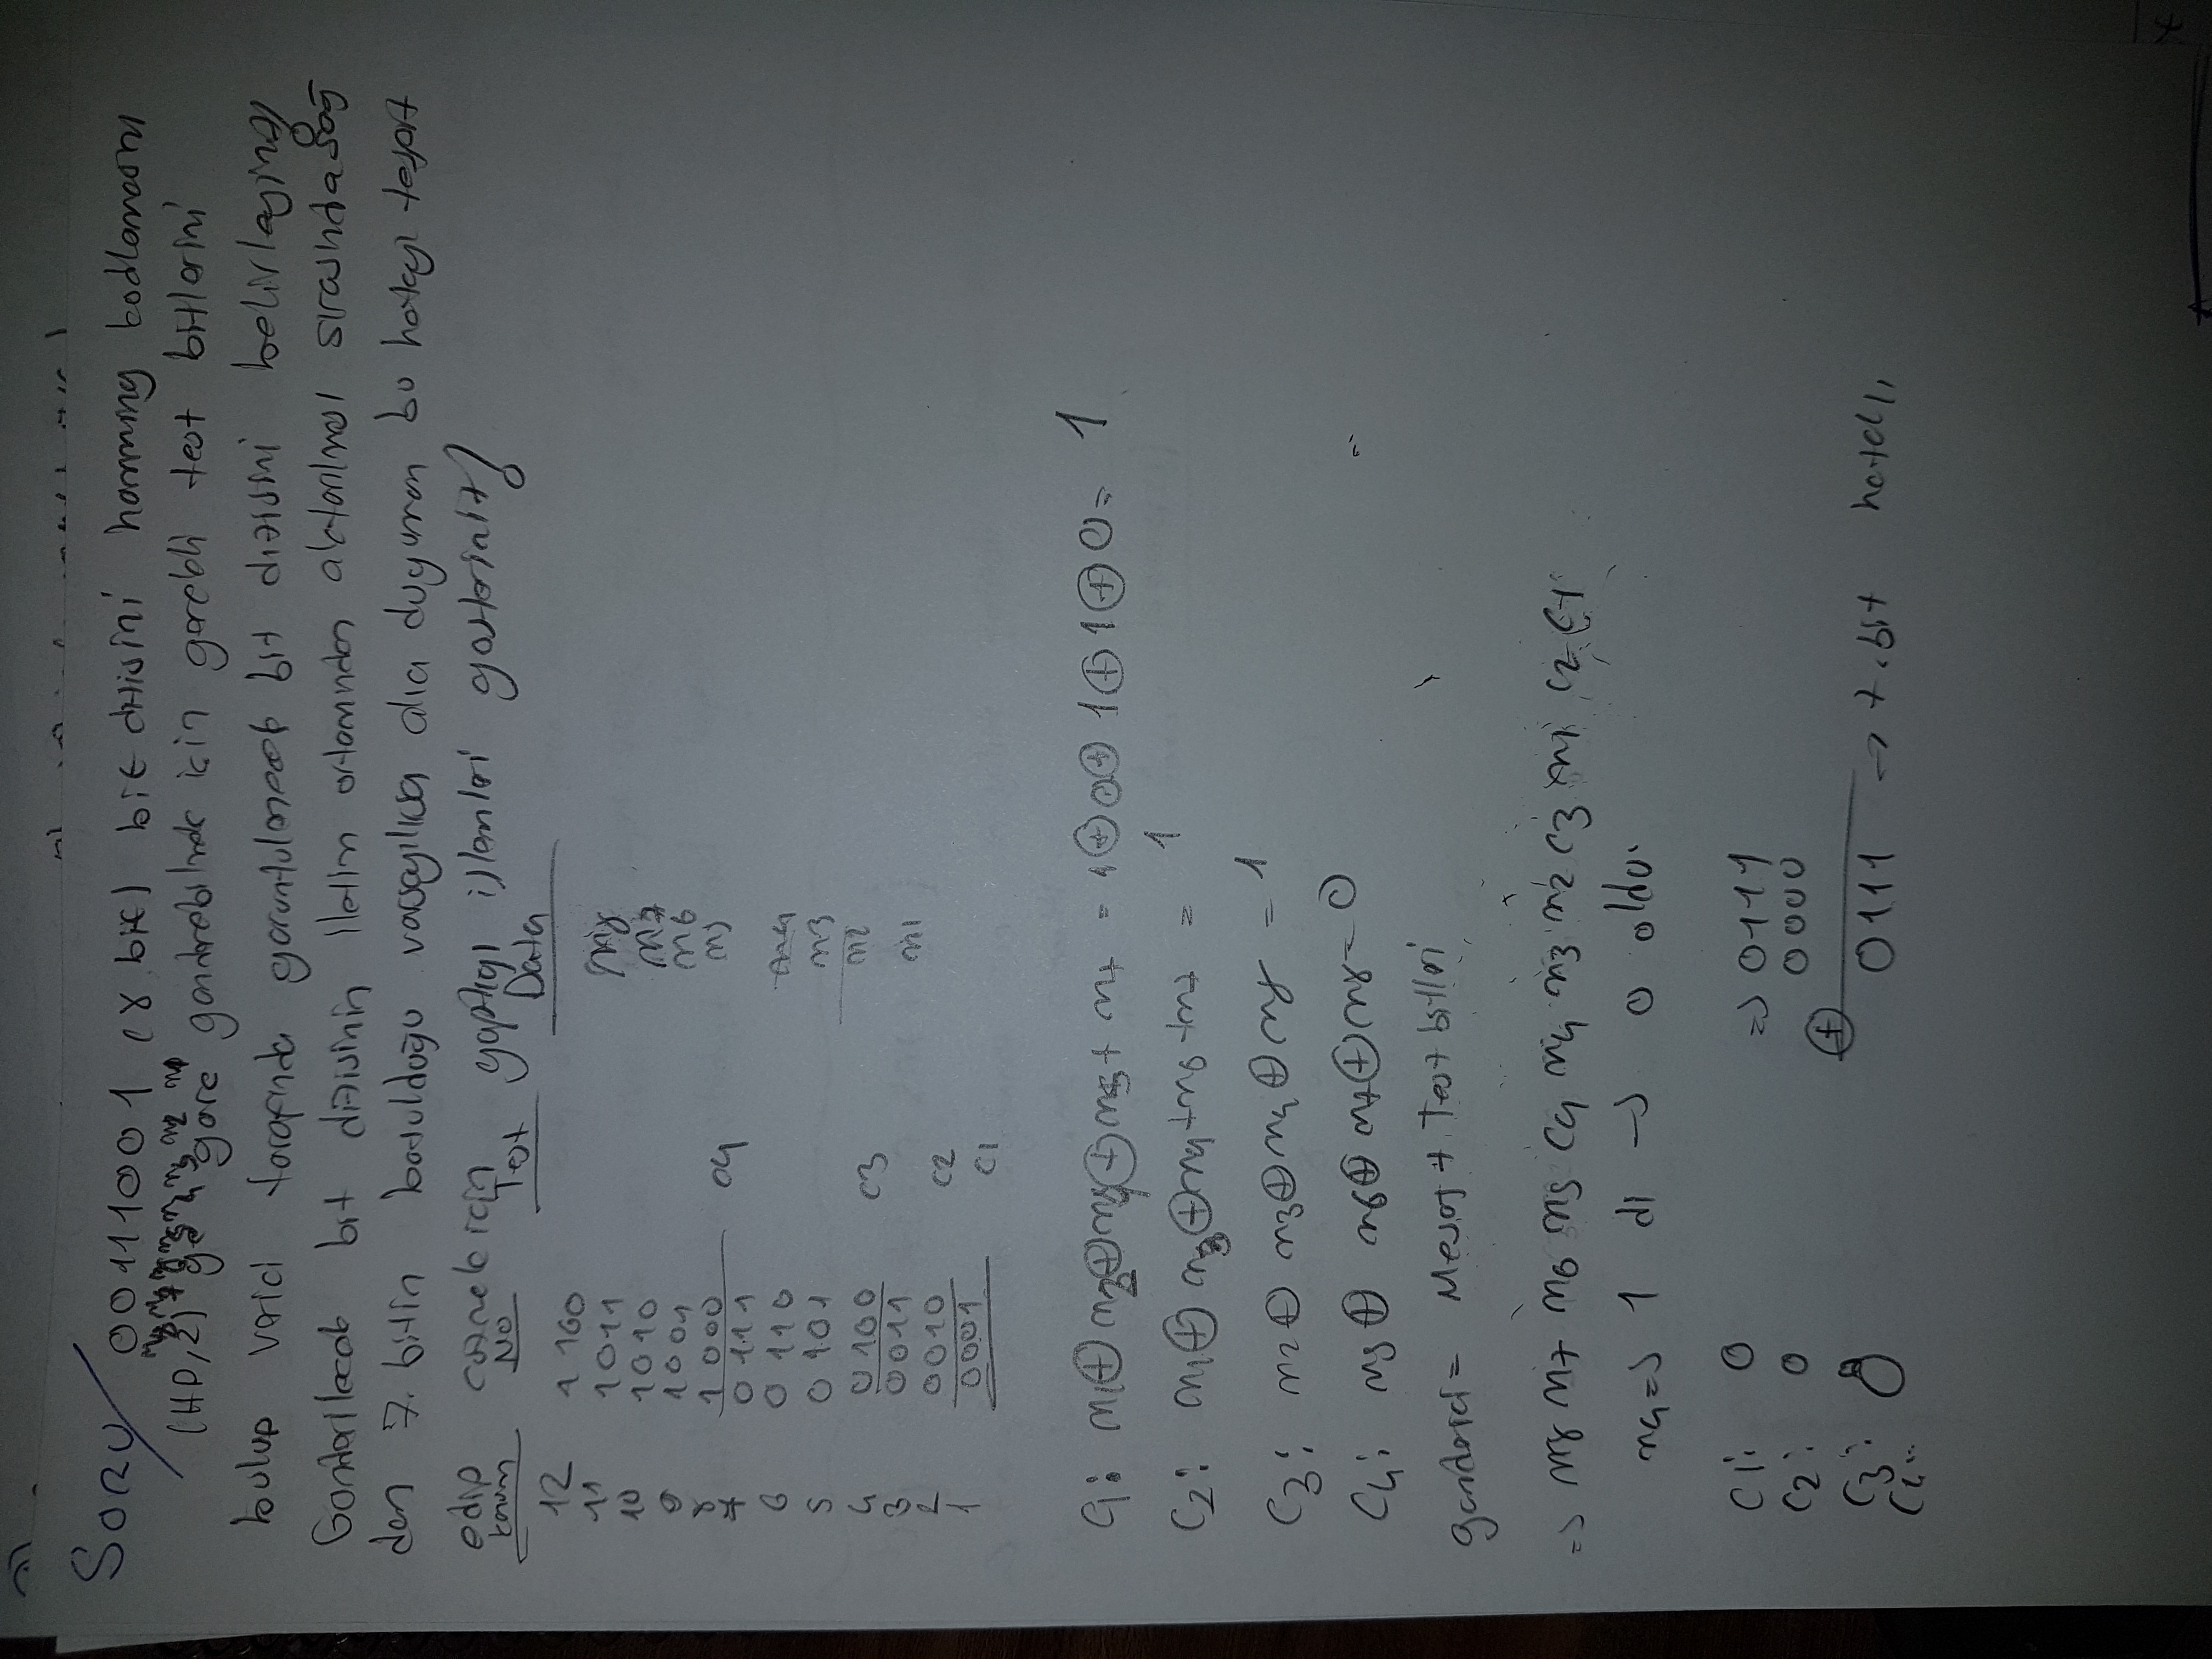 SORU/ 00111001 (8 bit) bit dizisini hamming kodlamasını
m8 m7 m6 m5 m4 m3 m2 m1
(HD,2) göre gönderebilmek için gerekli test bitlerini
bulup verici tarafında goruntulenecek bit dizisini belirleyiniz
Gonderilecek bit dizisinin iletim ortamından aktarılması sırasında sağ
dan 7. bitin bozulduğu varsayılırsa alıcı dugumun bu hatayı tespit
edip cozmek icin yaptıgı işlemleri gosteriniz!
konum No Test Data
12 1100 m8
11 1011 m7
10 1010 m6
9 1001 m5
8 1000 C4
7 0111 m4
6 0110 m3
5 0101 m2
4 0100 C3
3 0011 m1
2 0010 C2
1 0001 C1
C1: m1⊕m2⊕m4⊕m5+m7 = 1⊕0⊕1⊕1⊕0= 1
C2: m1⊕m3⊕m4+m6+m7 = 1
C3: m2⊕m3⊕m4⊕m8 = 1
C4: m5⊕m6⊕m7⊕m8=0
gonderici= Mesaj + Test bitleri
=> m8 m7 m6 m5 C4 m4 m3 m2 C3 m1 C2 C1
m4=> 1 di -> 0 oldu.
C1: 0 => 0111
C2: 0 0000
⊕
C3: 0 0111 -> 7.bit hatalı,
C4: